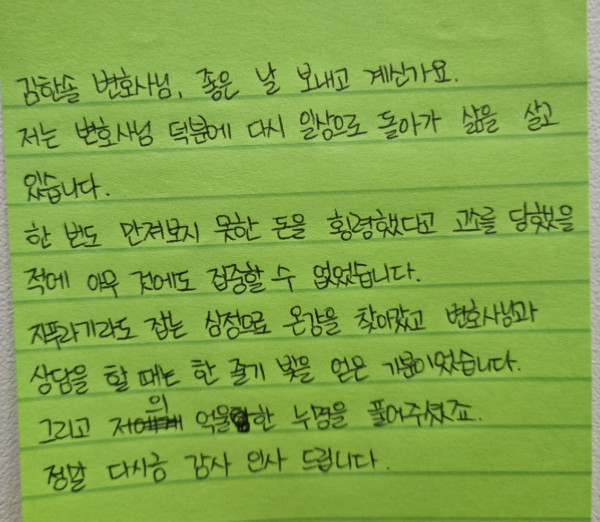 김한솔 변호사님, 좋은 날 보내고 계신가요.
저는 변호사님 덕분에 다시 일상으로 돌아가 삶을 살고
있습니다.
한 번도 만져보지 못한 돈을 횡령했다고 고소를 당했을
적에 아무 것에도 집중할 수 없었습니다.
지푸라기라도 잡는 심정으로 온강을 찾아갔고 변호사님과
상담을 할 때는 한 줄기 빛을 얻은 기분이었습니다.
그리고 저의 억울한 누명을 풀어주셨죠.
정말 다시금 감사 인사 드립니다.